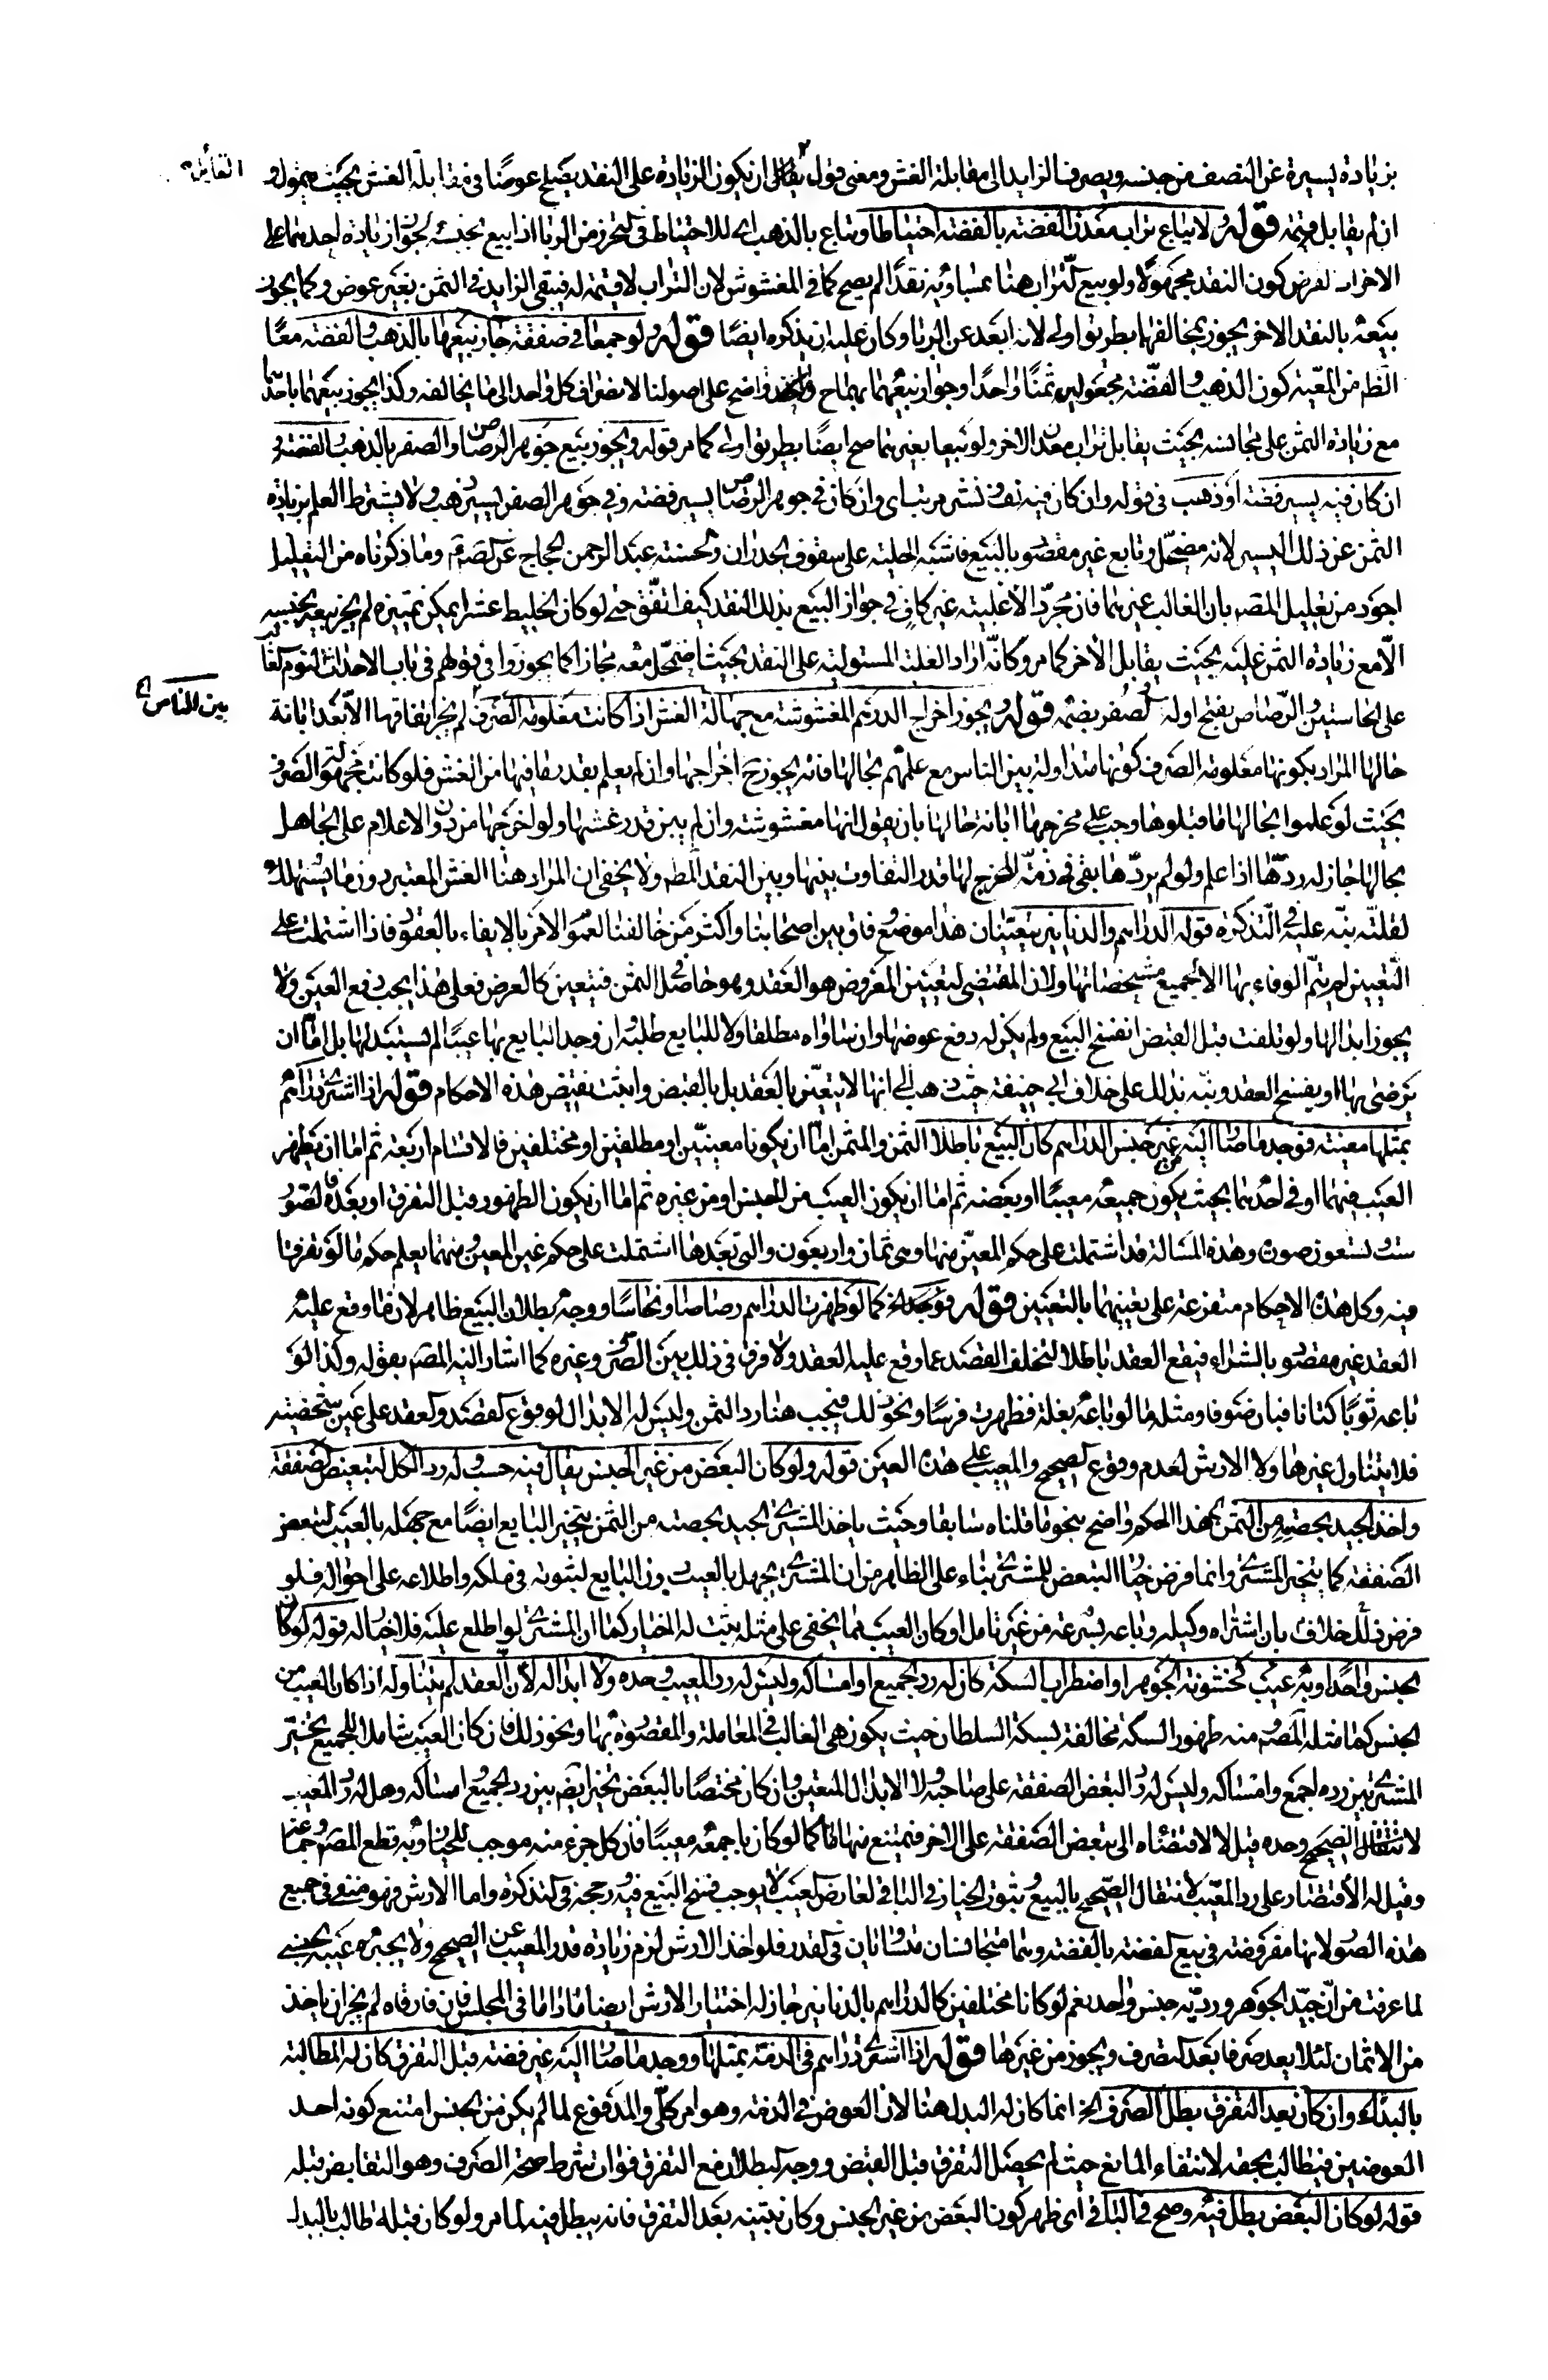 بزيادة يسيرة عن النصف من جنسه ويصرف الزايد الى مقابلة الغش ومعنى قول يقابل ان يكون الزيادة على النقد يصلح عوضا في مقابلة الغش بحيث يتمول و
القائل
ان لم يقابل قيمته قوله ولا يباع تراب معدن الفضة بالفضة احتياطا ويباع بالذهب اي للاحتياط في التحرز من الربا اذا بيع بجنسه لجواز زيادة احدهما على
الاخر لفرض كون النقد مجهولا ولو بيع التراب هنا بمساويه نقدا لم يصح كما في المغشوش لان التراب لا قيمة له فيبقى الزايد في الثمن بغير عوض وكما يجوز
بيعه بالنقد الاخر يجوز بمخالفهما بطريق اولى لانه ابعد عن الربا وكان عليه ان يذكره ايضا قوله ولو جمعا في صفقة جاز بيعهما بالذهب والفضة معا
الظ من المعية كون الذهب والفضة مجعولين ثمنا واحدا وجواز بيعهما بهما ح واضح على اصولنا لانصراف كل واحد الى ما يخالفه وكذا يجوز بيعهما باحدهما
مع زيادة الثمن على مجانسه بحيث يقابل تراب معدن الاخر ولو بيعا بغيرهما صح ايضا بطريق اولى كما مر قوله ويجوز بيع جوهر الرصاص والصفر بالذهب والفضة و
ان كان فيه يسير فضة او ذهب في قوله وان كان فيه لف ونشر مرتب اي وان كان في جوهر الرصاص يسير فضة وفي جوهر الصفر يسير ذهب ولا يشترط العلم بزيادة
الثمن عن ذلك اليسير لانه مضمحل وتابع غير مقصود بالبيع فاشبه الحلية على سقوف الجدران ولحسنة عبد الرحمن الحجاج عن الصادق وما ذكرناه من التعليل
اجود من تعليل المصه بان الغالب غيرهما فان مجرد الاغلبية غير كاف في جواز البيع بذلك النقد كيف اتفق حتى لو كان الخليط عشرا يمكن تمييزه لم يجز بيعه بجنسه
الا مع زيادة الثمن عليه بحيث يقابل الاخر كما مر وكانه اراد الغلبة المستولية على النقد بحيث اضمحل معه مجازا كما يجوزوا في قولهم في باب الاحداث النوم الغالب
على الحاستين والرصاص بفتح اوله والصفر بضمه قوله ويجوز اخراج الدرهم المغشوشة مع جهالة الغش اذا كانت معلومة الصرف لم يجز انفاقها الا بعد ابانة
بين الناس
حالها المراد بكونها معلومة الصرف كونها متداولة بين الناس مع علمهم بحالها فانه يجوز ح اخراجها وان لم يعلم بقدر ما فيها من الغش فلو كانت مجهولة الصرف
بحيث لو علموا بحالها ما قبلوها وجب على مخرجها ابانة حالها بان يقول انها مغشوشة وان لم يبين قدر غشها ولو اخرجها من دون الاعلام على الجاهل
بحالها جاز له ردها اذا علم ولو لم يردها بقي في ذمة المخرج لها قدر التفاوت بينها وبين النقد المطه ولا يخفى ان المراد هنا الغش المعتبر دون ما يستهلك
لقلته نبه عليه في التذكرة قوله الدراهم والدنانير يتعينان هذا موضع وفاق بين اصحابنا واكثر من خالفنا لعموم الامر بالايفاء بالعقود فاذا اشتملت على
التعيين لم يتم الوفاء بها الا بجميع مشخصاتها ولان المقتضي لتعيين المعروض هو العقد وهو حاصل في الثمن فيتعين كالعرض فعلى هذا يجب دفع العين ولا
يجوز ابدالها ولو تلفت قبل القبض انفسخ البيع ولم يكن له دفع عوضها وان ساواه مطلقا ولا للبايع طلبه وان وجد البايع بها عيبا لم يستبدلها بل اما ان
يرضى بها او يفسخ العقد ونبه بذلك على خلاف ابي حنيفة حيث ذهب الى انها لا يتعين بالعقد بل بالقبض واثبت نقيض هذه الاحكام قوله اذا اشترى دراهم
بمثلها معينة فوجد ما صار اليه من غير جنس الدراهم كان البيع باطلا الثمن والمثمن اما ان يكونا معينين او مطلقين او مختلفين فالاقسام اربعة ثم اما ان يظهر
العيب فيهما او في احدهما بحيث يكون جميعه معيبا او بعضه ثم اما ان يكون العيب من الجنس او من غيره ثم اما ان يكون الظهور قبل التفرق او بعده فالصور
ست وتسعون صورة وهذه المسالة قد اشتملت على حكم المعين منها وهي ثمان واربعون والتي بعدها اشتملت على حكم غير المعين ومنهما يعلم حكم ما لو تفرقتا
فيه وكل هذه الاحكام متفرعة على تعينهما بالتعيين قوله فوجد الخ كما لو ظهرت الدراهم رصاصا ونحاسا ووجه بطلان البيع ظاهر لان ما وقع عليه
العقد غير مقصود بالشراء فيقع العقد باطلا لتخلف القصد عما وقع عليه العقد ولا فرق في ذلك بين الصرف وغيره كما اشار اليه المصه بقوله وكذا لو
باعه ثوبا كتانا فبان صوفا ومثله ما لو باعه بغلة فظهرت فرسا ونحو ذلك فيجب هنا رد الثمن وليس له الابدال لوقوع القصد والعقد على عين شخصية
فلا يتناول غيرها ولا الارش لعدم وقوع الصحيح والمعيب على هذه العين قوله ولو كان البعض من غير الجنس يقال فيه حسب وله رد الكل لتبعيض الصفقة
واخذ الجيد بحصته من الثمن هذا الحكم واضح بنحو ما قلناه سابقا وحيث ياخذ المشتري الجيد بحصته من الثمن يتخير البايع ايضا مع جهله بالعيب لتبعض
الصفقة كما يتخير المشتري وانما فرض خيار التبعض للمشتري بناء على الظاهر من ان المشتري يجهل بالعيب دون البايع لثبوته في ملكه واطلاعه على احواله فلو
فرض ذلك خلاف بان اشتراه وكيله وباعه بسرعة من غير تامل او كان العيب مما يخفى على مثله يثبت له الخيار كما ان المشتري لو اطلع عليه فلا خيار له قوله لو كان
الجنس واحدا وبه عيب كخشونة الجوهر او اضطراب السكة كان له رد الجميع او امساكه وليس له رد المعيب وحده ولا ابداله لان العقد لم يتناوله اذا كان العيب من
الجنس كما مثله المصه منه ظهور السكة مخالفة لسكة السلطان حيث يكون هي الغالب في المعاملة والمقصودة بها ونحو ذلك فان كان العيب شاملا للجميع تخير
المشتري بين رده اجمع وامساكه وليس له رد البعض لتبعض الصفقة على صاحبه ولا الابدال للتعين وان كان مختصا بالبعض تخير ايضا بين رد الجميع وامساكه وهل له رد المعيب
لانتقال الصحيح وحده قيل لا لافضائه الى تبعض الصفقة على الاخر فيمتنع منها كما لو كان باجمعه معيبا فان كل جزء منه موجب للخيار وبه قطع المصه وجماعة
وقيل له الاقتصار على رد المعيب لانتقال الصحيح بالبيع وثبوت الخيار في الباقي لعارض العيب لا يوجب فسخ البيع فيه رجحه في التذكرة واما الارش فهو منفي في جميع
هذه الصور لانها مفروضة في بيع الفضة بالفضة وهما متجانسان متساويان في القدر فلو اخذ الارش لزم زيادة قدر المعيب عن الصحيح ولا يجبره عيبه الجنسي
لما عرفت من ان جيد الجوهر ورديه جنس واحد نعم لو كانا مختلفين كالدراهم بالدنانير جاز له اختيار الارش ايضا ما داما في المجلس فان فارقاه لم يجز ان ياخذ
من الاثمان لئلا يعد صرفا بعد التصرف ويجوز من غيرها قوله اذا اشترى دراهم في الذمة بمثلها ووجد ما صار اليه غير فضة قبل التفرق كان له المطالبة
بالبدل وان كان بعد التفرق بطل الصرف الخ انما كان له البدل هنا لان العوض في الذمة وهو امر كلي والمدفوع لما لم يكن من الجنس امتنع كونه احد
العوضين فيطالب بحقه لانتفاء المانع حيث لم يحصل التفرق قبل القبض ووجه البطلان مع التفرق فوات شرط صحة الصرف وهو التقابض قبله
قوله لو كان البعض بطل فيه وصح في الباقي اي ظهر كون البعض من غير الجنس وكان تبينه بعد التفرق فانه يبطل فيه لما مر ولو كان قبله طالب بالبدل